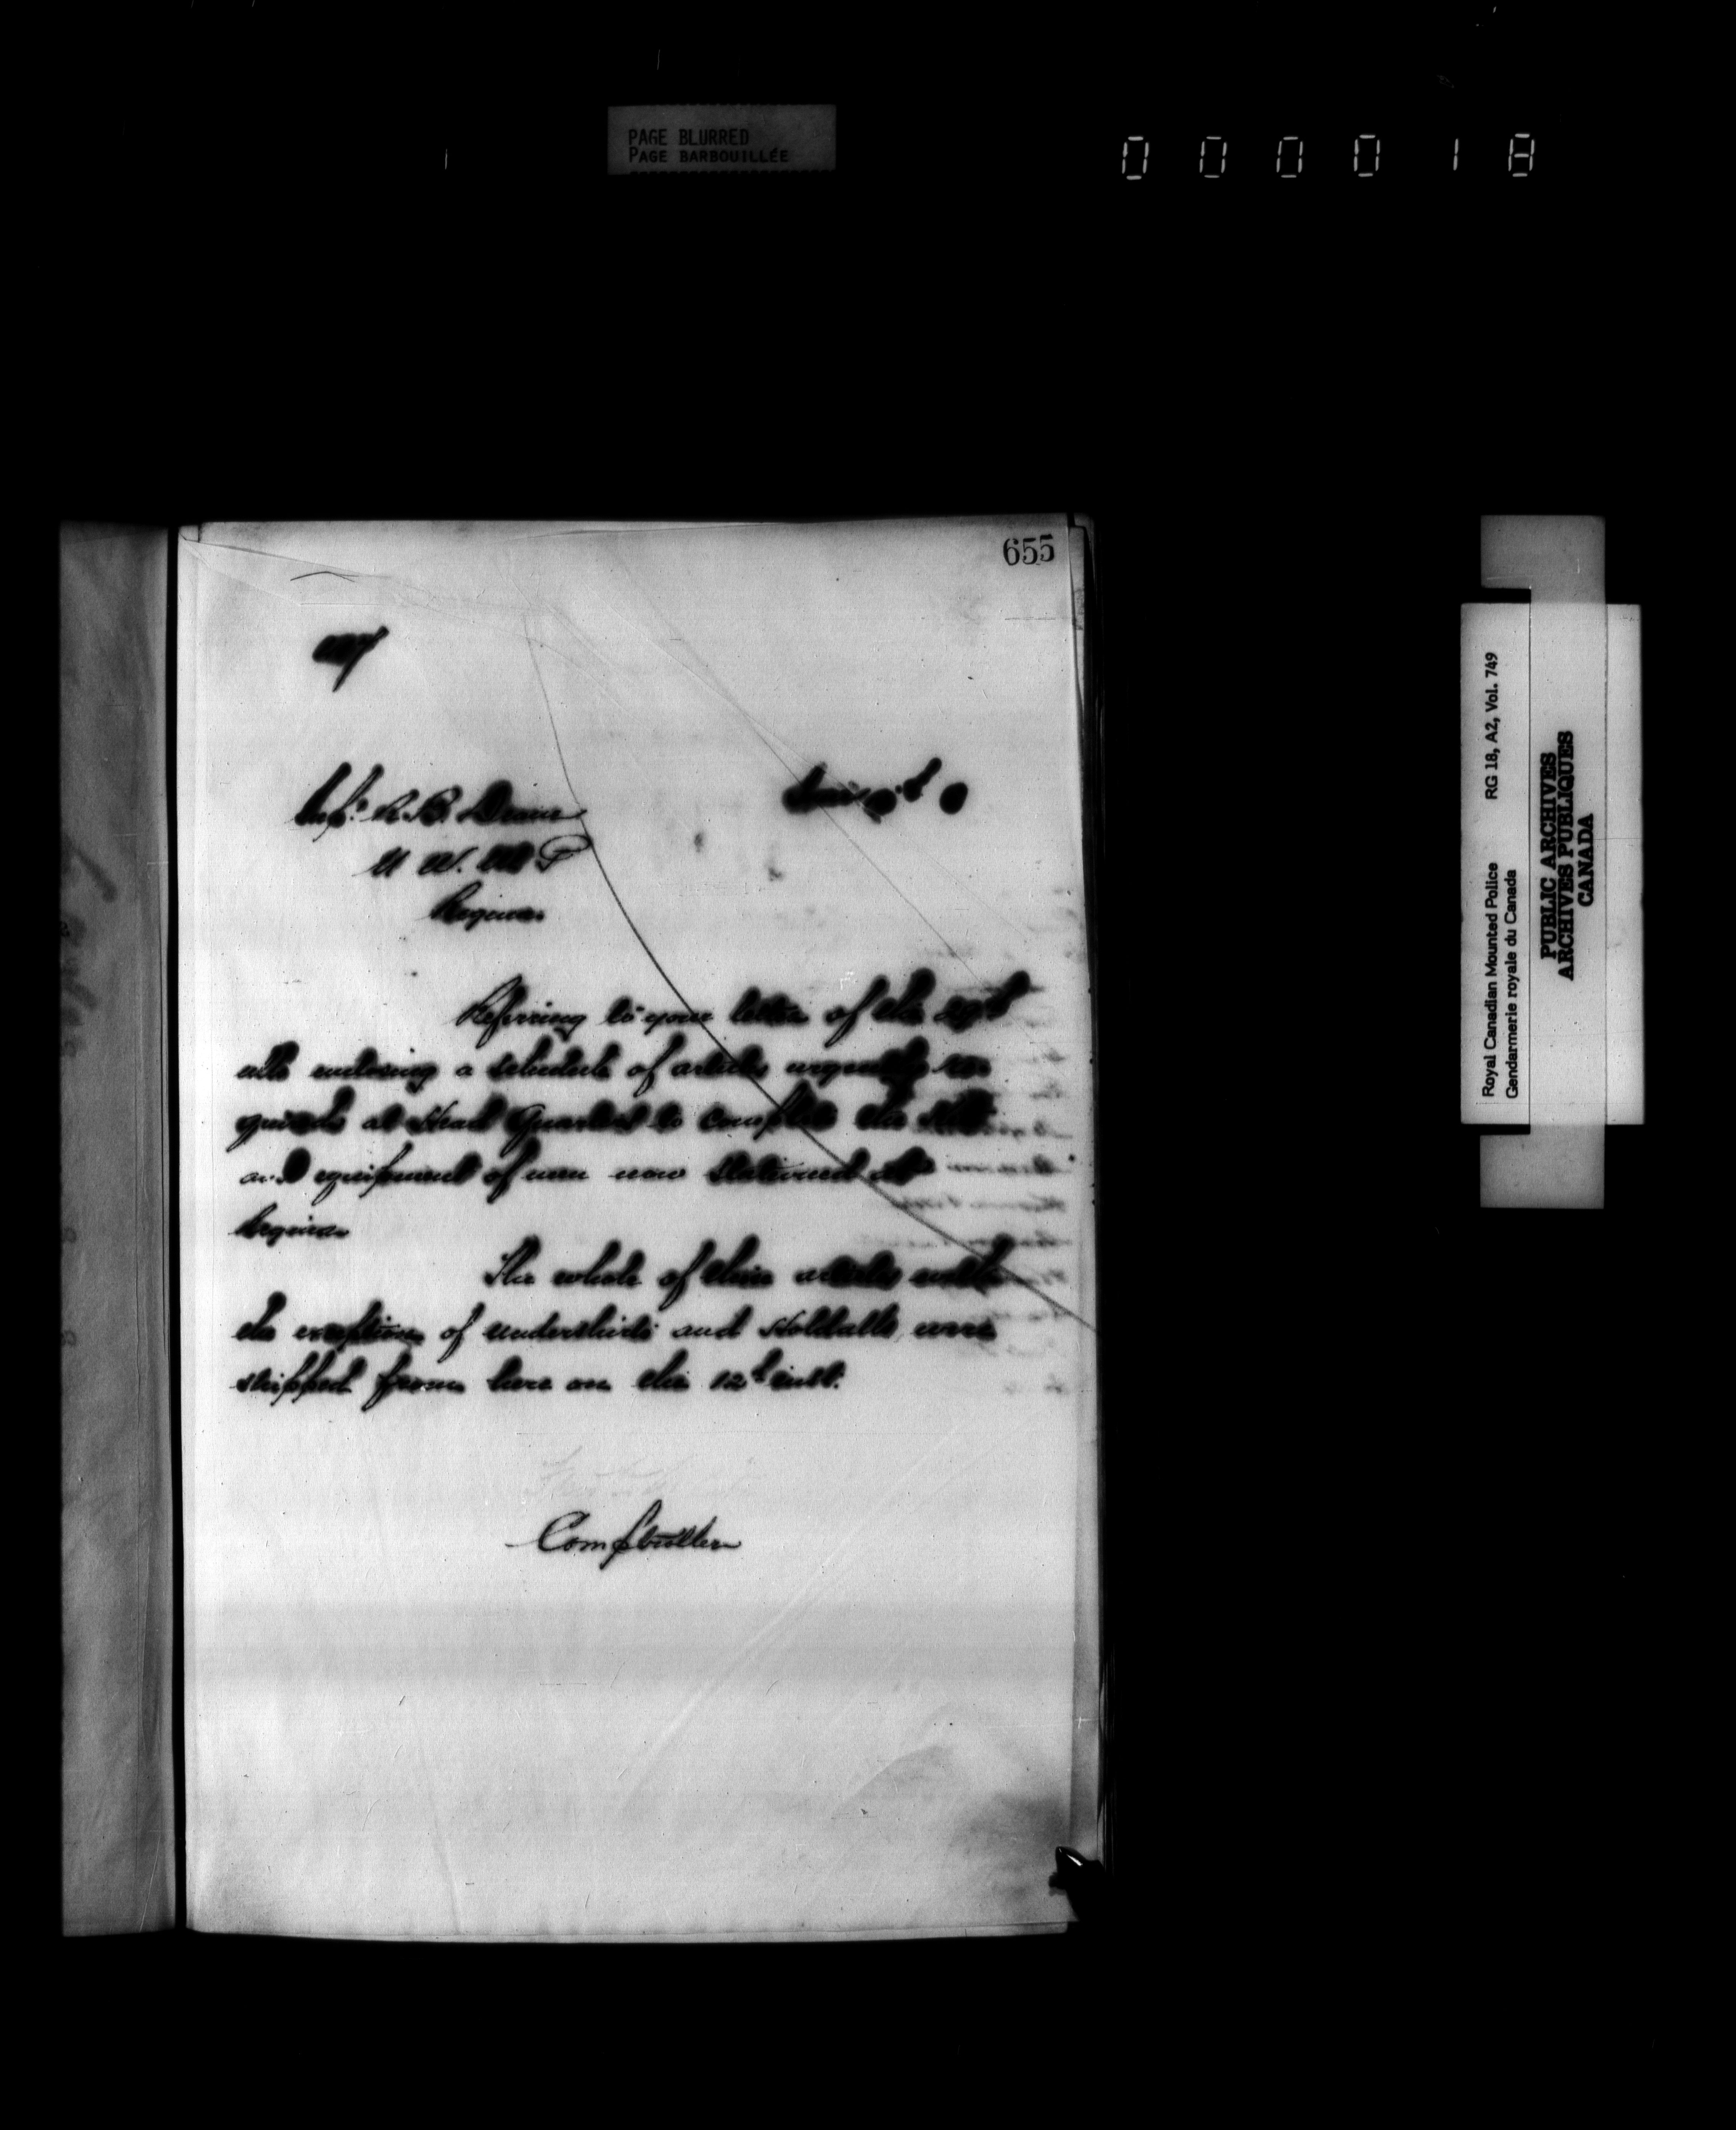 PAGE BLURRED
PAGE BARBOUILLÉE
0 0 0 0 1 8
655
R. B. Deane
N. W. M. P
Regina
Referring to your letter of the 29th
ulto enclosing a schedule of articles urgently re-
quired at Head Quarters to complete the Kits
and equipment of men now stationed at
Regina
The whole of these articles with
the exception of undershirts and Holdalls, were
shipped from here on the 12th inst.
Comptroller
Royal Canadian Mounted Police RG 18, A2, Vol. 749
Gendarmerie royale du Canada
PUBLIC ARCHIVES
ARCHIVES PUBLIQUES
CANADA